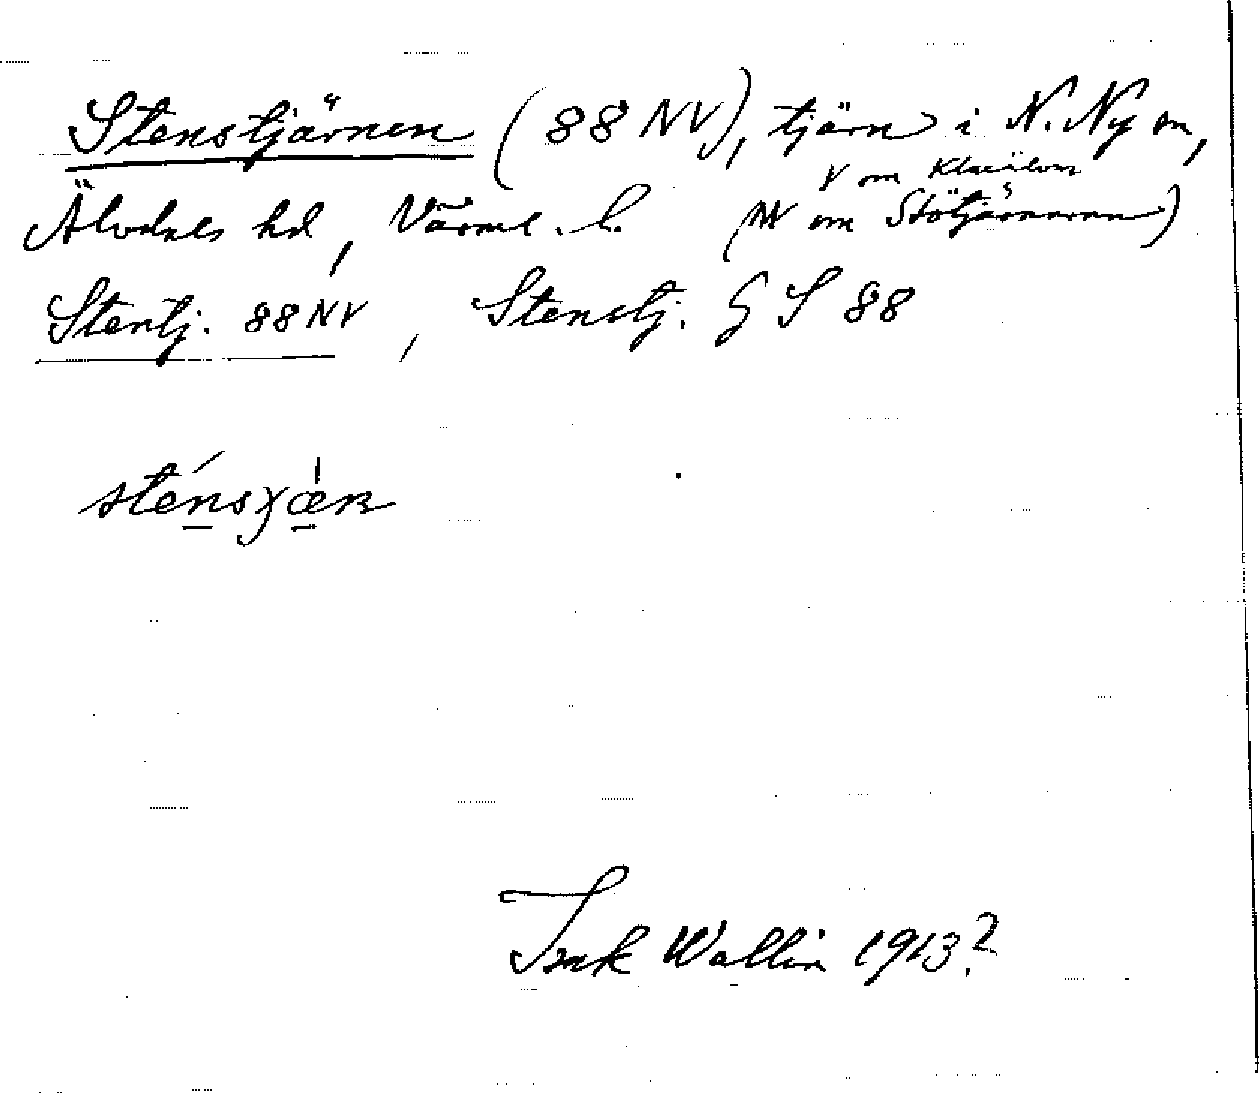 Stenstjärnen (88 NV), tjärn i N. Ny sn,
V om Klarälven
Älvdals hd, Värml. l. (NV om Stötjärnarna)
Stentj. 88 NV, Stenstj. G S 88
sténsχæ̀ɴ
Isak Wallin 1913?